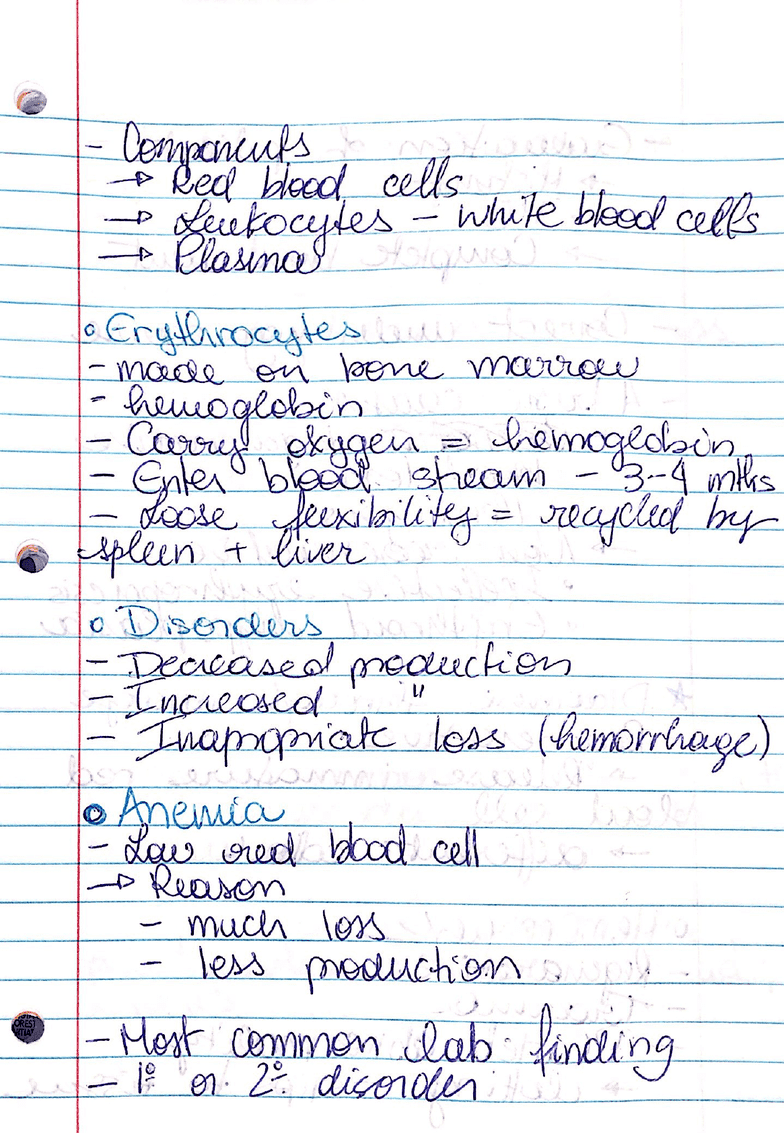 - Components
→ Red blood cells
→ Leukocytes - white blood cells
→ Plasma
o Erythrocytes
- made on bone marrow
- hemoglobin
- Carry oxygen = hemoglobin
- Enter blood stream - 3-4 mths
- Loose flexibility = recycled by
spleen + liver
o Disorders
- Decreased production
- Increased "
- Inapropriate loss (hemorrhage)
o Anemia
- Low red blood cell
→ Reason
- much loss
- less production
- Most common lab finding
- 1º or 2º disorder